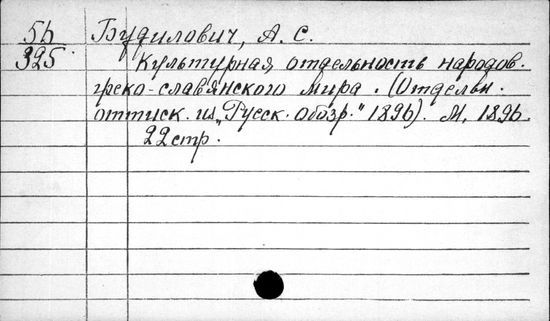 5б Будилович, А. С.
325 Культурная отдельность народов.
греко-славянского мира. (Отдельн.
оттиск. из „Русск. обозр." 1896). М. 1896.
22 стр.